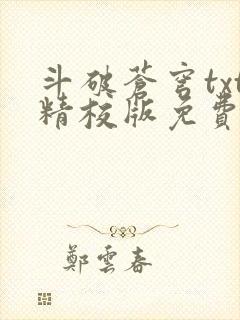 斗破蒼穹txt
精校版免費
鄭雲春